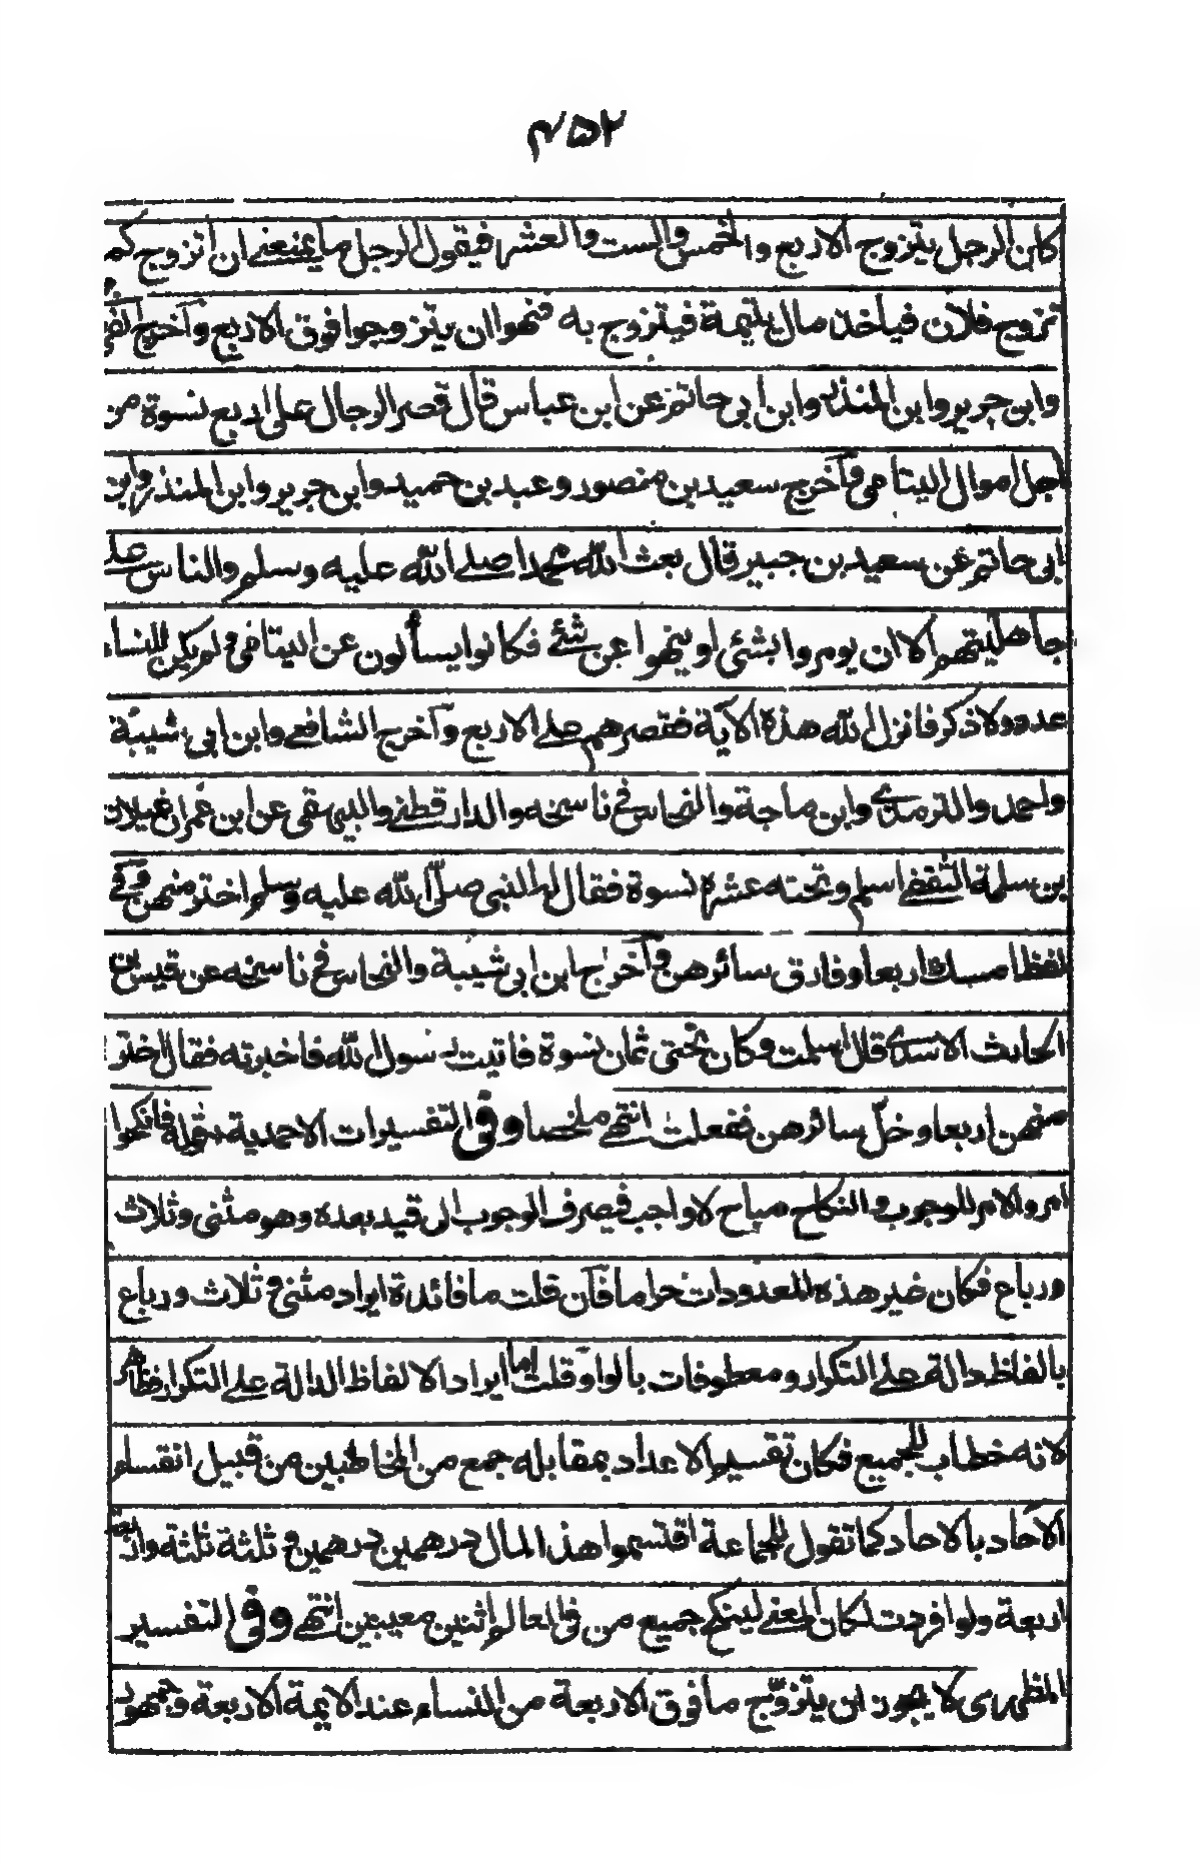 ۴۵۲
كان الرجل يتزوج الاربع والخمس والست والعشر فيقول الرجل ما يمنعنے ان اتزوج كما
تزوج فلان فياخذ مال يتيمة فيتزوج به فنهوا ان يتزوجوا فوق الاربع وآخرج
وابن جرير وابن المنذر وابن ابى حاتم عن ابن عباس قال قصر الرجال على اربع نسوة من
اجل اموال اليتامى وآخرج سعيد بن منصور وعبد بن حميد وابن جرير وابن المنذر وابن
ابى حاتم عن سعيد بن جبير قال بعث الله محمدا صلے الله عليه وسلم والناس علے
جاهليتهم الا ان يومروا بشئى او ينهوا عن شئے فكانوا يسألون عن اليتامى ولم يكن للنساء
عدد ولا ذكر فانزل الله هذه الآية فقصرهم علے الاربع وآخرج الشافعے وابن ابى شيبة
واحمد والترمذے وابن ماجة والنحاس فى ناسخه والدارقطنے والبيهقى عن ابن عمران غيلان
بن سلمة الثقفے اسلم وتحته عشرة نسوة فقال له النبى صلّ الله عليه وسلم اختر منهن وفى
لفظ امسك اربعا وفارق سائرهن وآخرج ابن ابى شيبة والنحاس فى ناسخه عن قيس بن
الحارث الاسدے قال اسلمت وكان تحتى ثمان نسوة فاتيت رسول الله فاخبرته فقال اختر
منهن اربعا وخلّ سائرهن ففعلت انتهے ملخصا وفى التفسيرات الاحمدية قوله فانكحوا
امر والامر للوجوب والنكاح مباح لا واجب فيصرف الوجوب الى قيد بعده وهو مثنى وثلاث
ورباع فكان غير هذه المعدودات حراما فآن قلت ما فائدة ايراد مثنى وثلاث ورباع
بالفاظ دالة علے التكرار ومعطوفات بالواو قلت اما ايراد الالفاظ الدالة علے التكرار فظاهر
لانه خطاب للجميع فكان تقسيم الاعداد بمقابله جمع من المخاطبين من قبيل انقسام
الآحاد بالاحاد كما تقول للجماعة اقتسموا هذا المال درهمين درهمين و ثلثة ثلثة واربعة
اربعة ولو افردت لكان المعنے لينكح جميع من فى العالم اثنين معينين انتهے وفى التفسير
المظهرى لا يجوز ان يتزوّج ما فوق الاربعة من النساء عند الايمة الاربعة وجمهور